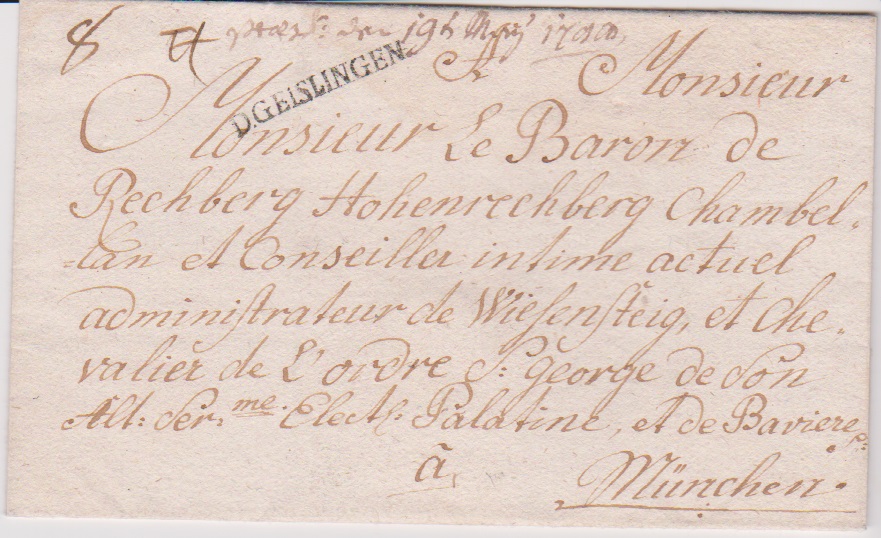 den 19t May
D.GEISLINGEN
A Monsieur
Monsieur Le Baron de
Rechberg Hohenrechberg Chambel.
=lan et Conseiller intime actuel
adminiſtrateur de Wieſenſteig, et Che.
valier de L'ordre S: George de Son
Alt: Ser: me. Elect: Palatine, et de Baviere
à,
München.